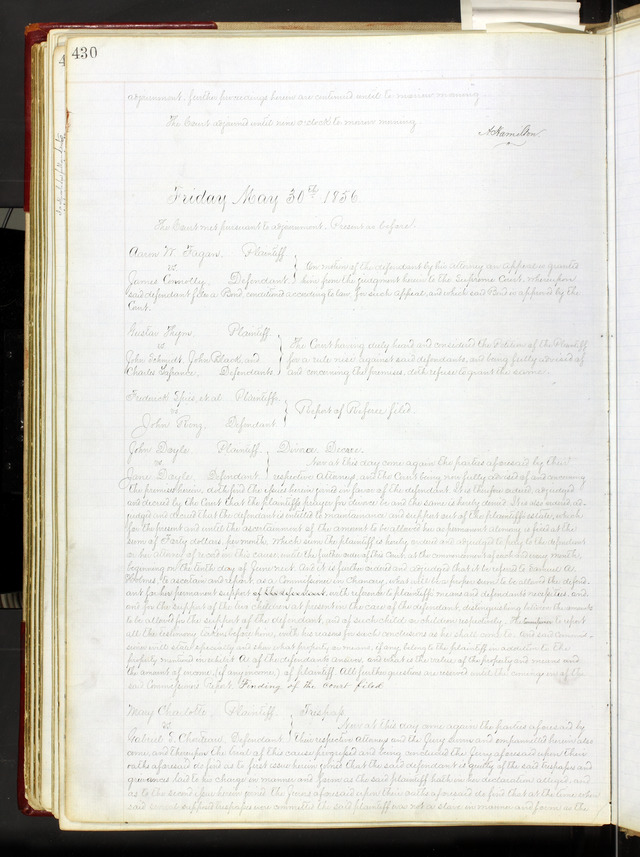 430
adjournment, further proceedings herein are continued until to morrow morning.
The Court adjourned until nine o'clock to morrow morning
A Hamilton
Friday May 30th 1856
The Court met pursuant to adjournment. Present as before.
Aaron W. Fagan Plaintiff
vs.
James Connolly, Defendant
On motion of the defendant by his attorney an appeal is granted
him from the judgment herein to the Supreme Court, whereupon
said defendant files a Bond, conditioned according to law for such appeal, and which said Bond is approved by the
Court.
Gustav Plaintiff
vs.
John Schmidt, John Black, and
Charles Defendants
The Court having duly heard and considered the Petition of the Plaintiff
for a rule nisi against said defendants, and being fully advised of
and concerning the premises, doth refuse to grant the same.
Frederick et al Plaintiffs
vs.
John Defendant
Report of Referee filed.
John Dayle Plaintiff
vs.
Jane Dayle, Defendant
Divorce Decree.
Now at this day come again the parties aforesaid by their
respective Attorneys, and the Court being now fully advised of and concerning
the premises herein, doth find the issues herein joined in favor of the defendant. It is therefore ordered, adjudged
and decreed by the Court that the plaintiff's prayer for divorce be and the same is hereby denied. It is also ordered ad-
judged and decreed that the defendant is entitled to maintenance and support out of the plaintiff's estate, which
for the present and until the ascertainment of the amount to be allowed her as permanent alimony is fixed at the
sum of Forty dollars, per month, which sum the plaintiff is hereby ordered and adjudged to pay to the defendant
or her attorney of record in this cause, until the further order of this Court at the commencement of each and every month,
beginning on the tenth day of June next. And it is further ordered and adjudged that it be referred to Samuel A.
Holmes, to ascertain and report, as a Commissioner in Chancery, what will be a proper sum to be allowed the defend-
ant for her permanent support of the defendant, with reference to plaintiff's means and defendant's necessities, and
one for the support of the two children at present in the care of the defendant, distinguishing between the amounts
to be allowed for the support of the defendant, and of such child or children respectively. The Commissioner to report
all the testimony taken before him, with his reasons for such conclusions as he shall come to. And said Commis-
sioner will also specially
property mentioned in exhibit A of the defendant's answer, and what is the value of the property and means and
the amount of income, (if any income,) of plaintiff. All further questions are reserved until the coming in of the
said Commissioner's Report. Finding of the Court filed
Mary Charlotte, Plaintiff
vs
Gabriel S. Chouteau, Defendant
Trespass,
Now at this day come again the parties aforesaid by
their respective attorneys and the Jury sworn and empannelled herein also
come, and thereupon the trial of this cause progressed and being concluded the Jury aforesaid upon their
oaths aforesaid do find as to first issue herein joined that the said defendant is guilty of the said trespasses and
grievances laid to his charge in manner and form as the said plaintiff hath in her declaration alleged. and
as to the second issue herein joined the Jurors aforesaid upon their oaths aforesaid do find that at the time when
said supposed trespass was committed the said plaintiff was not a slave in manner and form as the